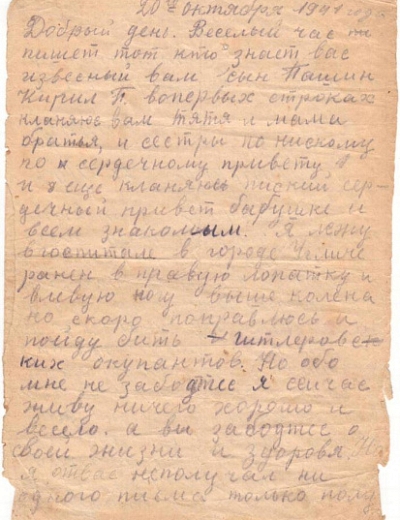 20го октября 1941 года
Добрый день. Веселый час
пишет тот кто знает вас
извесный вам сын Пашин
Кирил Б. вопервых строках
кланяюсь вам тятя и мама
братья, и сестры по нискому
по сердечному привету,
и я еще кланяюсь ниский сер-
дечный привет бабушке и
всем знакомым. Я лежу
вгоспитале в городе Угличе
ранен в правую лопатку и
влевую ногу выше колена
но скоро поправлюсь и
пойду бить гитлеровс
ких окупантов. Но обо
мне не забодтесь я сейчас
живу ничего хорошо и
весело. а вы забодтесь о
своей жизни и здоровя, Но
я отвас неполучал ни
одного письма только